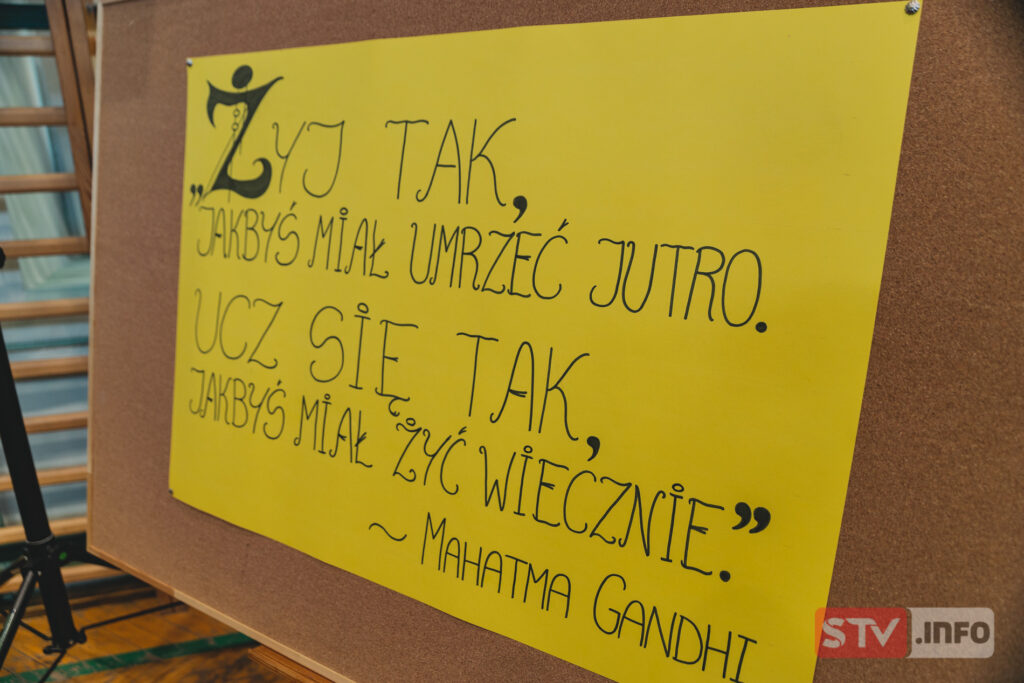 „Żyj tak,
jakbyś miał umrzeć jutro.
Ucz się tak,
jakbyś miał żyć wiecznie.”
~ Mahatma Gandhi
STV.INFO